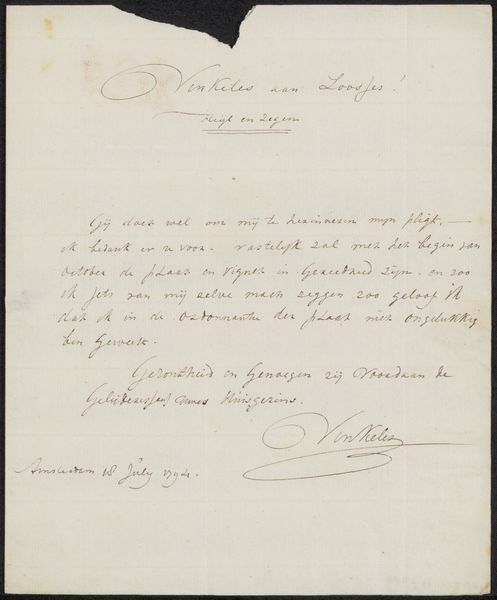 Vinkeles aan Loosjes!
Heijl en Zegen
Gij doet wel om mij te herinneren mijn pligt. —
ik bedank er u voor. vastelijk zal met het begin van
October de plaat en vignet in Gereedheid zijn. en zoo
ik jets van mij zelve mach zeggen zoo geloof ik
dat ik in de Ordonnantie der plaat niet ongelukkig
ben Geweest.
Gezondheid en Genoegen zij Voordaan de
uwes Huisgezins.
Vinkeles
Amsterdam 18 July 1794.